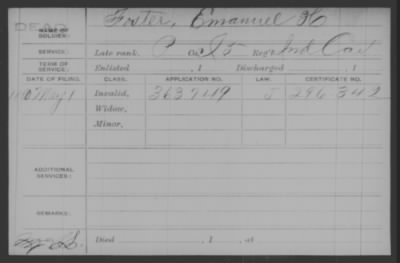 DEAD
NAME OF SOLDIER: Foster, Emanuel H
SERVICE: Late rank, P Co. I, 5 Reg't Ind Cav
TERM OF SERVICE: Enlisted , 1 Discharged , 1
DATE OF FILING. CLASS. APPLICATION NO. LAW. CERTIFICATE NO.
May 1 Invalid, 363749 J 296342
Widow,
Minor,
ADDITIONAL SERVICES:
REMARKS:
Died , 1 , at